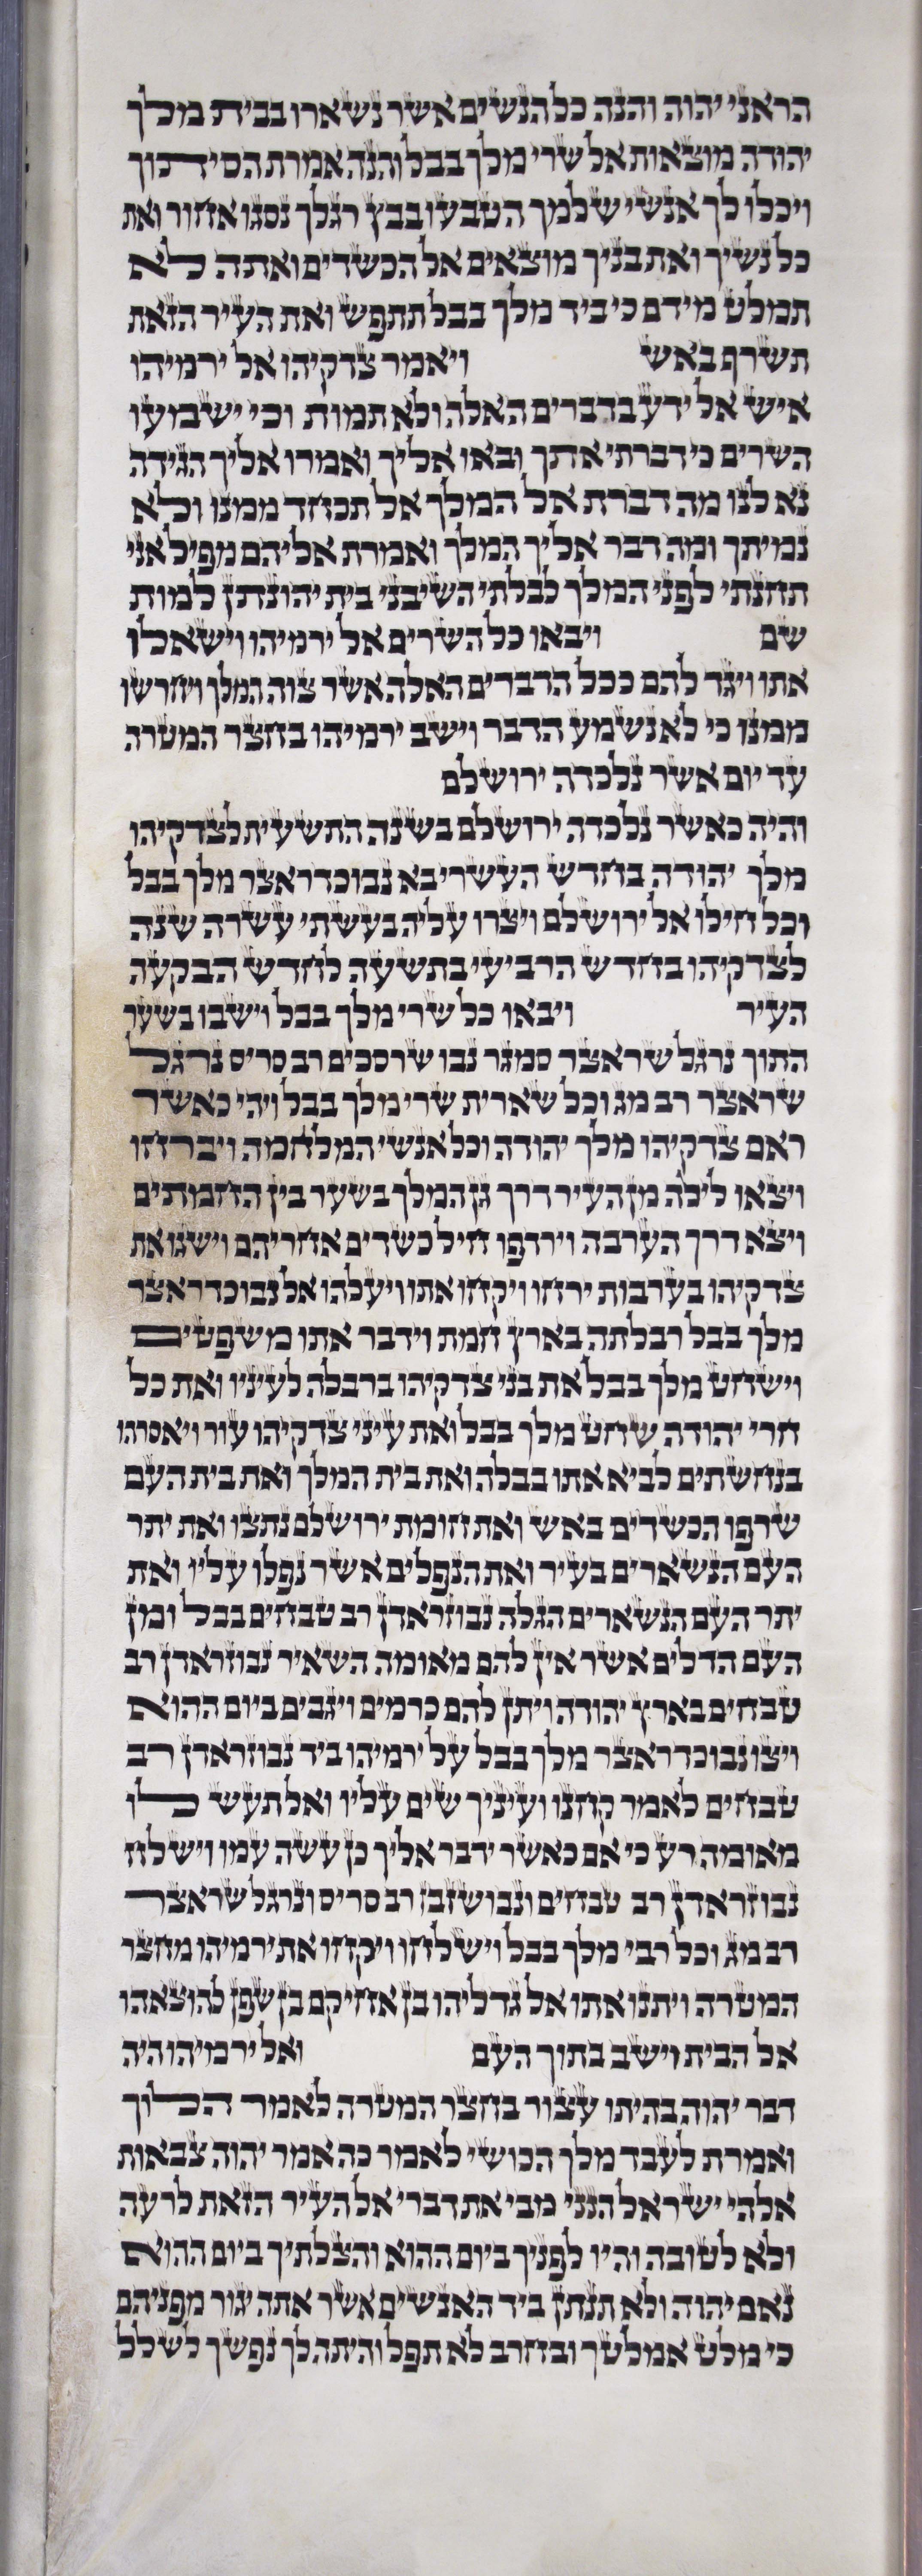 הראני יהוה והנה כל הנשים אשר נשארו בבית מלך
יהודה מוצאות אל שרי מלך בבל והנה אמרת הסיתוך
ויכלו לך אנשי שלמך הטבעו בבץ רגלך נסגו אחור ואת
כל נשיך ואת בניך מוצאים אל הכשדים ואתה לא
תמלט מידם כי ביד מלך בבל תתפש ואת העיר הזאת
תשרף באש ויאמר צדקיהו אל ירמיהו
איש אל ידע בדברים האלה ולא תמות וכי ישמעו
השרים כי דברתי אתך ובאו אליך ואמרו אליך הגידה
נא לנו מה דברת אל המלך אל תכחד ממנו ולא
נמיתך ומה דבר אליך המלך ואמרת אליהם מפיל אני
תחנתי לפני המלך לבלתי השיבני בית יהונתן למות
שם ויבאו כל השרים אל ירמיהו וישאלו
אתו ויגד להם ככל הדברים האלה אשר צוה המלך ויחרשו
ממנו כי לא נשמע הדבר וישב ירמיהו בחצר המטרה
עד יום אשר נלכדה ירושלם
והיה כאשר נלכדה ירושלם בשנה התשעית לצדקיהו
מלך יהודה בחדש העשרי בא נבוכדראצר מלך בבל
וכל חילו אל ירושלם ויצרו עליה בעשתי עשרה שנה
לצדקיהו בחדש הרביעי בתשעה לחדש הבקעה
העיר ויבאו כל שרי מלך בבל וישבו בשער
התוך נרגל שראצר סמגר נבו שרסכים רב סריס נרגל
שראצר רב מג וכל שארית שרי מלך בבל ויהי כאשר
ראם צדקיהו מלך יהודה וכל אנשי המלחמה ויברחו
ויצאו לילה מן העיר דרך גן המלך בשער בין החמתים
ויצא דרך הערבה וירדפו חיל כשדים אחריהם וישגו את
צדקיהו בערבות ירחו ויקחו אתו ויעלהו אל נבוכדראצר
מלך בבל רבלתה בארץ חמת וידבר אתו משפטים
וישחט מלך בבל את בני צדקיהו ברבלה לעיניו ואת כל
חרי יהודה שחט מלך בבל ואת עיני צדקיהו עור ויאסרהו
בנחשתים לביא אתו בבלה ואת בית המלך ואת בית העם
שרפו הכשדים באש ואת חומת ירושלם נתצו ואת יתר
העם הנשארים בעיר ואת הנפלים אשר נפלו עליו ואת
יתר העם הנשארים הגלה נבוזראדן רב טבחים בבל ומן
העם הדלים אשר אין להם מאומה השאיר נבוזראדן רב
טבחים בארץ יהודה ויתן להם כרמים ויגבים ביום ההוא
ויצו נבוכדראצר מלך בבל על ירמיהו ביד נבוזראדן רב
טבחים לאמר קחנו ועיניך שים עליו ואל תעש לו
מאומה רע כי אם כאשר ידבר אליך כן עשה עמו וישלח
נבוזראדן רב טבחים ונבושזבן רב סריס ונרגל שראצר
רב מג וכל רבי מלך בבל וישלחו ויקחו את ירמיהו מחצר
המטרה ויתנו אתו אל גדליהו בן אחיקם בן שפן להוצאהו
אל הבית וישב בתוך העם ואל ירמיהו היה
דבר יהוה בהיתו עצור בחצר המטרה לאמר הלוך
ואמרת לעבד מלך הכושי לאמר כה אמר יהוה צבאות
אלהי ישראל הנני מבי את דברי אל העיר הזאת לרעה
ולא לטובה והיו לפניך ביום ההוא והצלתיך ביום ההוא
נאם יהוה ולא תנתן ביד האנשים אשר אתה יגור מפניהם
כי מלט אמלטך ובחרב לא תפל והיתה לך נפשך לשלל